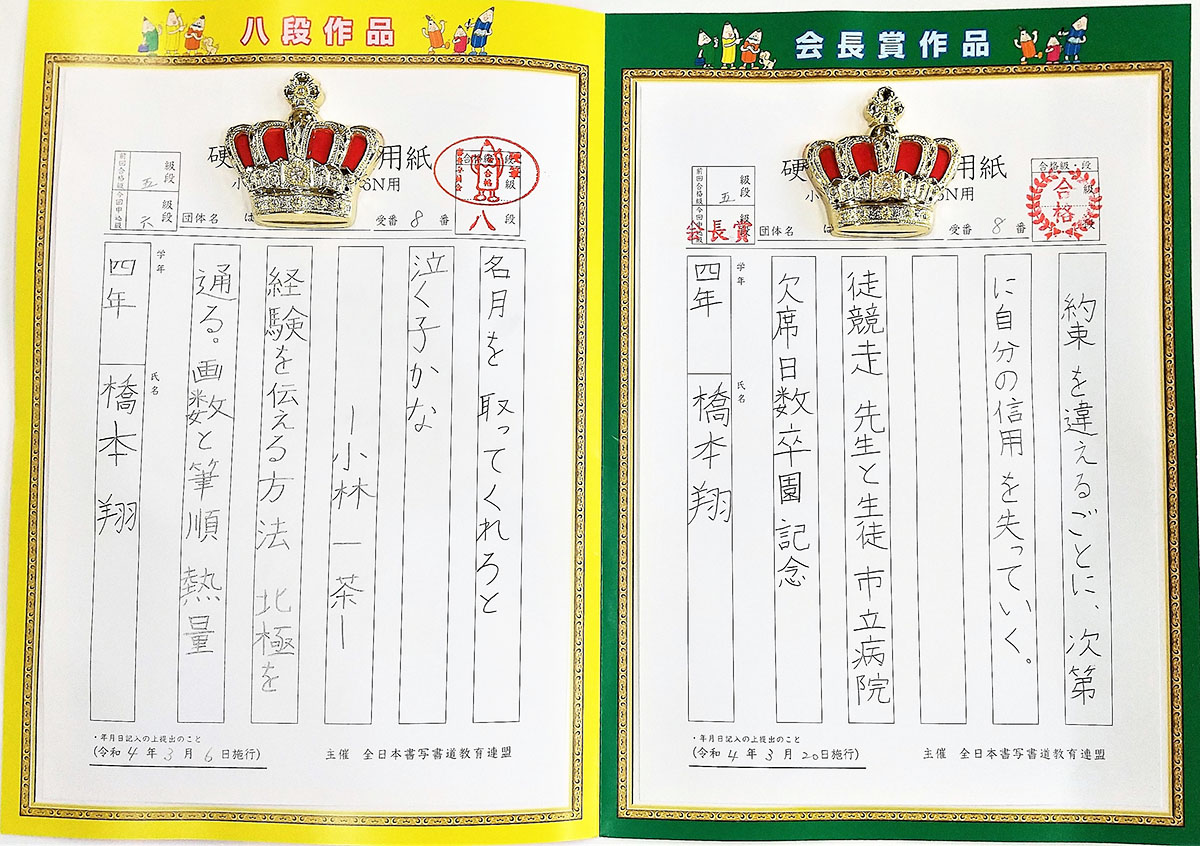 八段作品
硬 用紙
小 6N用
前回合格級 五 級段
今回申込級 六 級段
団体名 は
受番 8 番
合格級・段
合格
級
八 段
名月を取ってくれろと
泣く子かな
ー小林一茶ー
経験を伝える方法 北極を
通る。画数と筆順 熱量
学年 四年
氏名 橋本翔
・年月日記入の上提出のこと
(令和4年3月6日施行)
主催 全日本書写書道教育連盟
会長賞作品
硬 用紙
小 6N用
前回合格級 五 級段
今回申込級 級段
会長賞
団体名 は
受番 8 番
合格級・段
合格
級
約束を違えるごとに、次第
に自分の信用を失っていく。
徒競走 先生と生徒 市立病院
欠席日数 卒園記念
学年 四年
氏名 橋本翔
・年月日記入の上提出のこと
(令和4年3月20日施行)
主催 全日本書写書道教育連盟